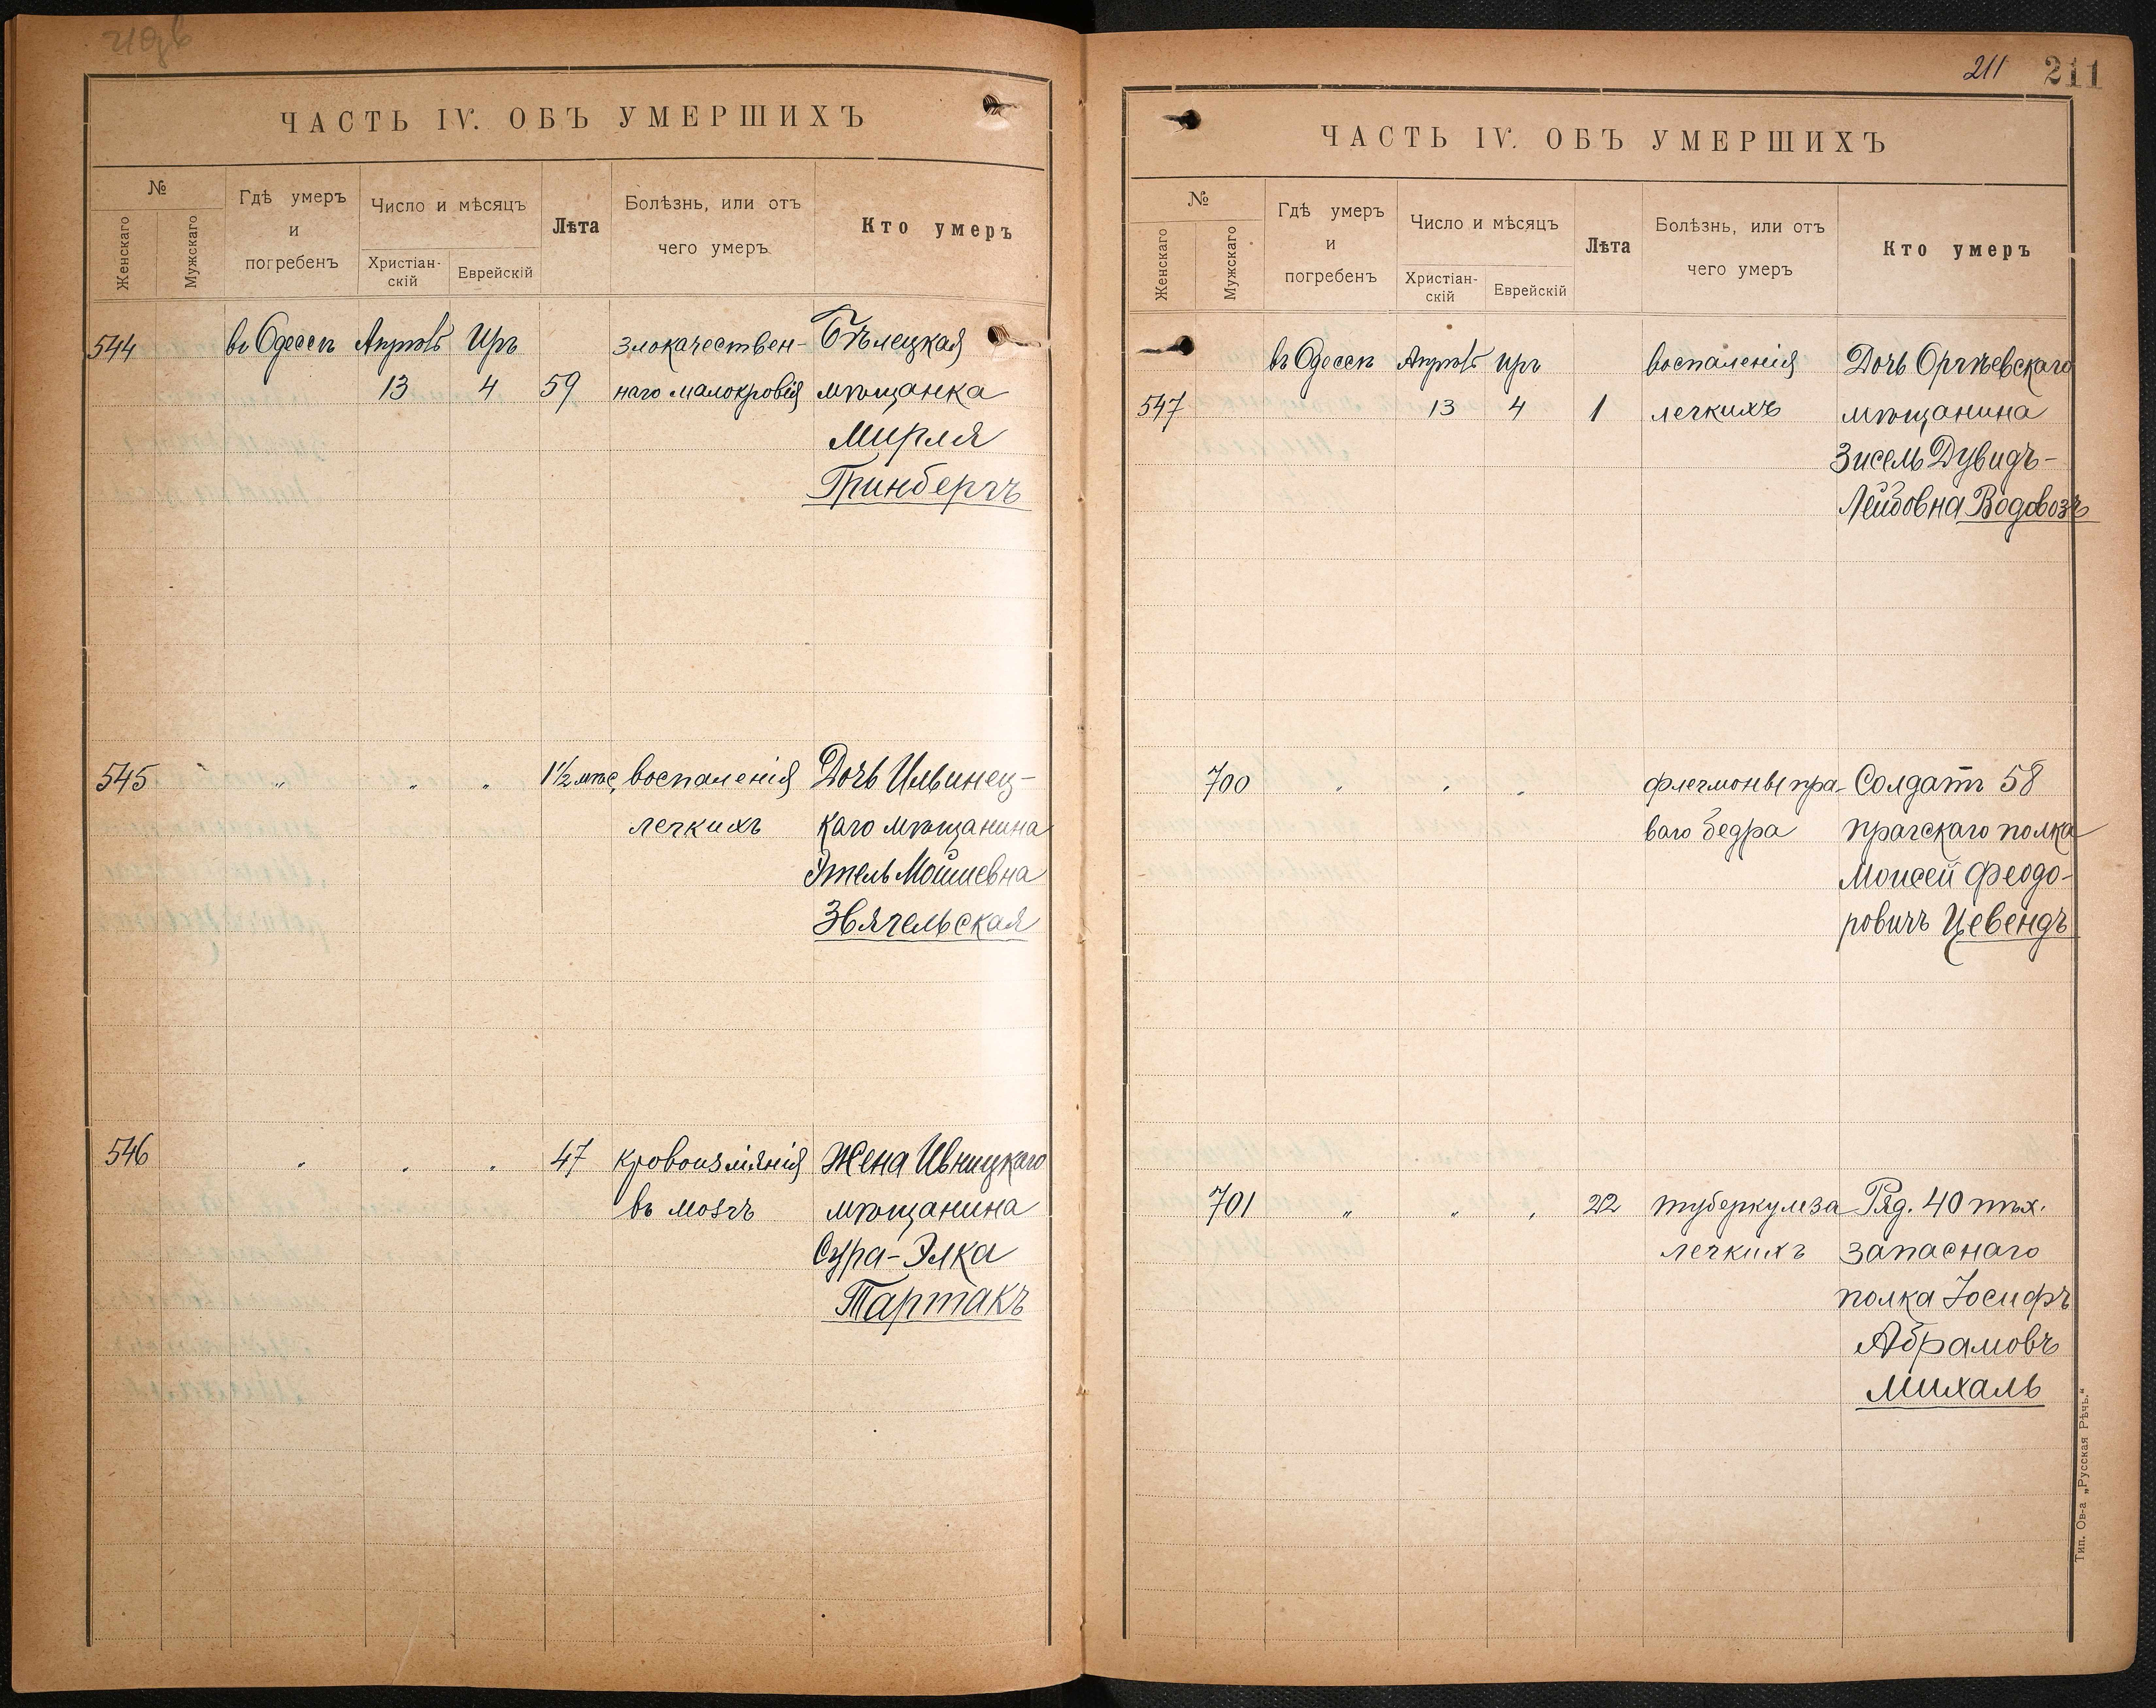 ЧАСТЬ IV. ОБЪ УМЕРШИХЪ
№
Женскаго
Мужскаго
Гдѣ умеръ
и
погребенъ
Число и мѣсяцъ
Христіан-
скій
Еврейскій
Лѣта
Болѣзнь, или отъ
чего умеръ
Кто умеръ
544 въ Одессѣ Апрѣль Иръ злокачествен- Бѣлецкая
13 4 59 наго малокровія мѣщанка
Мирля
Гринбергъ
545 " " " 1½ мѣс. воспаленія Дочь Ильинец-
легкихъ каго мѣщанина
Этель Мошневна
Звягельская
546 " " " 47 кровоизліянія Жена Ивницкаго
въ мозгъ мѣщанина
Сура-Элка
Тартакъ
211 211
ЧАСТЬ IV. ОБЪ УМЕРШИХЪ
№
Женскаго
Мужскаго
Гдѣ умеръ
и
погребенъ
Число и мѣсяцъ
Христіан-
скій
Еврейскій
Лѣта
Болѣзнь, или отъ
чего умеръ
Кто умеръ
въ Одессѣ Апрѣль Иръ воспаленія Дочь Оргѣевскаго
547 13 4 1 легкихъ мѣщанина
Зисель Дувидъ-
Лейбовна Водовозъ
700 " " " флегмоны пра- Солдатъ 58
ваго бедра прагскаго полка
Моисей Феодо-
ровичъ Цевендъ
701 " " " 22 туберкулеза Ряд. 40 пѣх.
легкихъ запаснаго
полка Іосифъ
Абрамовъ
Михаль
Тип. Ов-а „Русская Рѣчь."